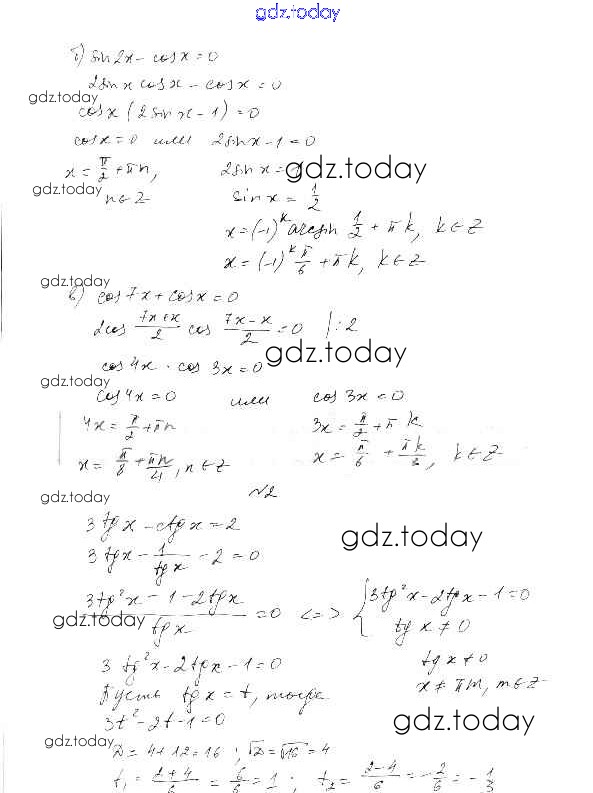 gdz.today
б) sin2x - cosx = 0
2sinx cosx - cosx = 0
gdz.today
cosx (2sinx - 1) = 0
cosx = 0 или 2sinx - 1 = 0
x = π/2 + πn, 2sinx = 1
gdz.today
gdz.today
n ∈ Z sinx = 1/2
x = (-1)^k arcsin 1/2 + πk, k ∈ Z
x = (-1)^k π/6 + πk, k ∈ Z
gdz.today
в) cos7x + cosx = 0
2cos (7x+x)/2 cos (7x-x)/2 = 0 |:2
gdz.today
cos4x · cos 3x = 0
gdz.today
cos4x = 0 или cos 3x = 0
4x = π/2 + πn 3x = π/2 + πk
x = π/8 + πn/4, n ∈ Z x = π/6 + πk/3, k ∈ Z
№2
gdz.today
3tgx - ctgx = 2
gdz.today
3tgx - 1/tgx - 2 = 0
(3tg²x - 1 - 2tgx)/tgx = 0 <=> { 3tg²x - 2tgx - 1 = 0
tg x ≠ 0
gdz.today
3 tg²x - 2tgx - 1 = 0 tgx ≠ 0
Пусть tgx = t, тогда x ≠ πm, m ∈ Z
3t² - 2t - 1 = 0
gdz.today
gdz.today
D = 4 + 12 = 16 ; √D = √16 = 4
t₁ = (2+4)/6 = 6/6 = 1 ; t₂ = (2-4)/6 = -2/6 = -1/3